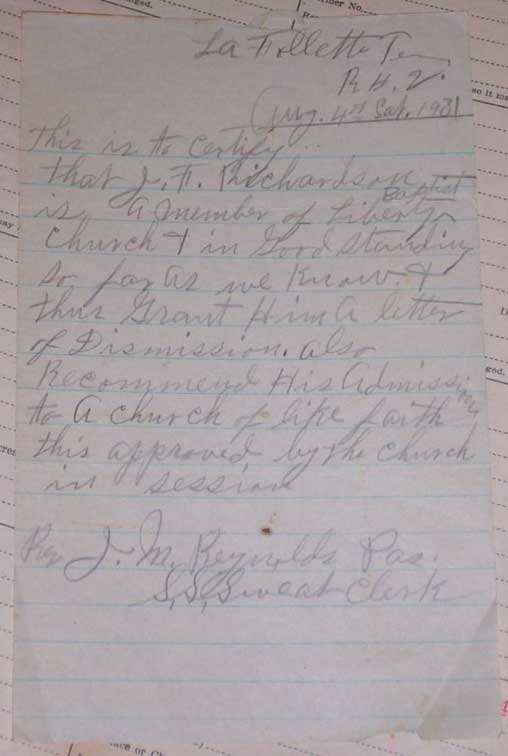 La Follette Ten
R #. 2.
Aug. 4st Sat. 1931
This is to certify
that J. F. Richardson
is a member of Liberty Baptist
Church & in Good Standing
so far as we Know. &
thus Grant Him A letter
of Dismission. also
Recommend His Admission
to A church of like faith
this approved by the church
in session
Rev J. M. Reynolds Pas.
S. S. Sweat Clerk